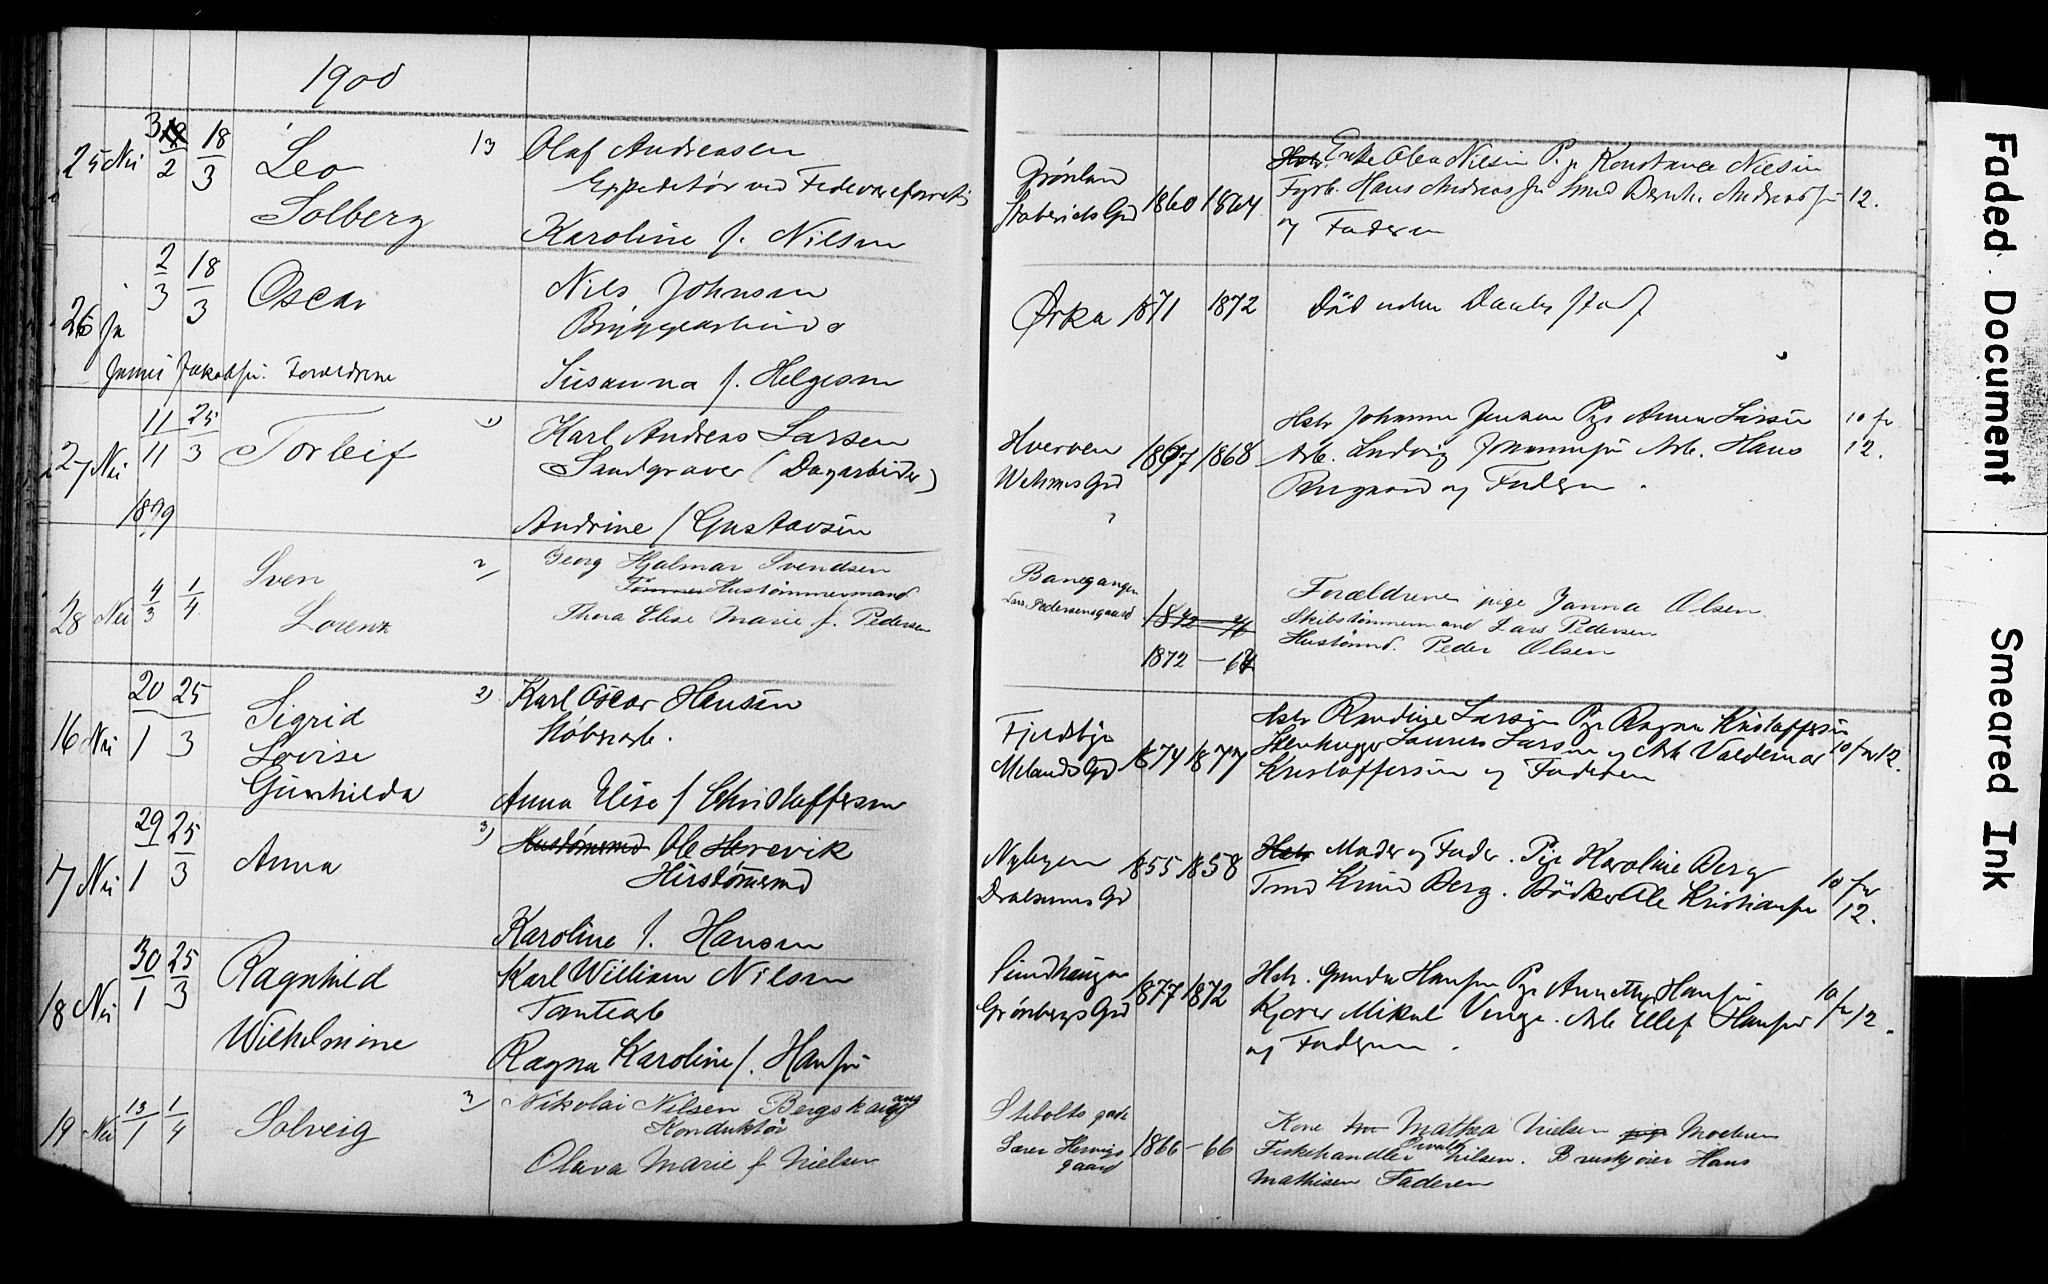 1900
25 Nei 3/2 18/3 Leo 13 Olaf Andreasen
Solberg Expeditør ved
Karoline f. Nilsen
26 Ja 2/3 18/3 Oscar Nils Johnsen
Bryggearbeider
Forældrene Susanna f. Helgesen
27 Nei 11/11 25/3 Torleif Karl Andreas Larsen
Sandgraver (Dagarbeider)
1899 Andrine f Gustavsen
28 Nei 4/3 1/4 Sven 2) Georg Hjalmar Svendsen
Lorenz Tømmer Hustømmermand
Thora Elise Marie f. Pedersen
16 Nei 20/1 25/3 Sigrid 2) Karl Oscar Hansen
Lovise Støberarb.
Gunhilda Anna Elise f Christoffersen
7 Nei 29/1 25/3 Anna 3) Hustømmmd Ole Herevik
Hustømmd
Karoline f. Hansen
18 Nei 30/1 25/3 Ragnhild Karl William Nilsen
Tomtearb
Wilhelmine Ragna Karoline f. Hansen
19 Nei 13/1 1/4 Solveig 3/ Nikolai Nilsen Bergskaug
Konduktør
Olava Marie f Nielsen
Grønland 1860 1864 Enke Olea Nilsen Pige Konstance Nilsen
Fyrb. Hans Andreas Smed Bernh. Andreas 12.
og Faderen
Ørka 1871 1872 Död uden Daab
Hverven 1867 1868 Hstr Johanne Jensen Pige Anna Larsen 10 fr
Wehmes Gd Arb. Ludvig Arb. Hans 12.
og Faderen
Banegangen Forældrene pige Janna Olsen
Lars Pedersensgaard 1872 Skibstømmermand Lars Pedersen
1872 - 67 Hustømmd. Peder Olsen
Fjeldsbye Hstr Randine Larsen Pige Ragna Kristoffersen
Melands Gd 1874 1877 Stenhugger Laurits Larsen og Arb Valdemar 10 fr 12.
Kristoffersen og Faderen
Nybyen 1855 1858 Hstr Moder og Fader. Pige Karoline Berg
Tmd Knud Berg. Bødker Ole Kristiansen 10 fr 12.
Sundhaugen 1877 1872 Hstr. Gunda Hansen Pige Annette Hansen 10 fr 12.
Grønbergs Gd Kjører Mikal Vinge. Arb Ellef Hansen
og Faderen.
Stebolts gade Kone Mathea Nielsen pige Moderen
1866 - 66 Fiskehandler Nilsen. Hans
gaard Mathisen Faderen
Faded Document
Smeared Ink